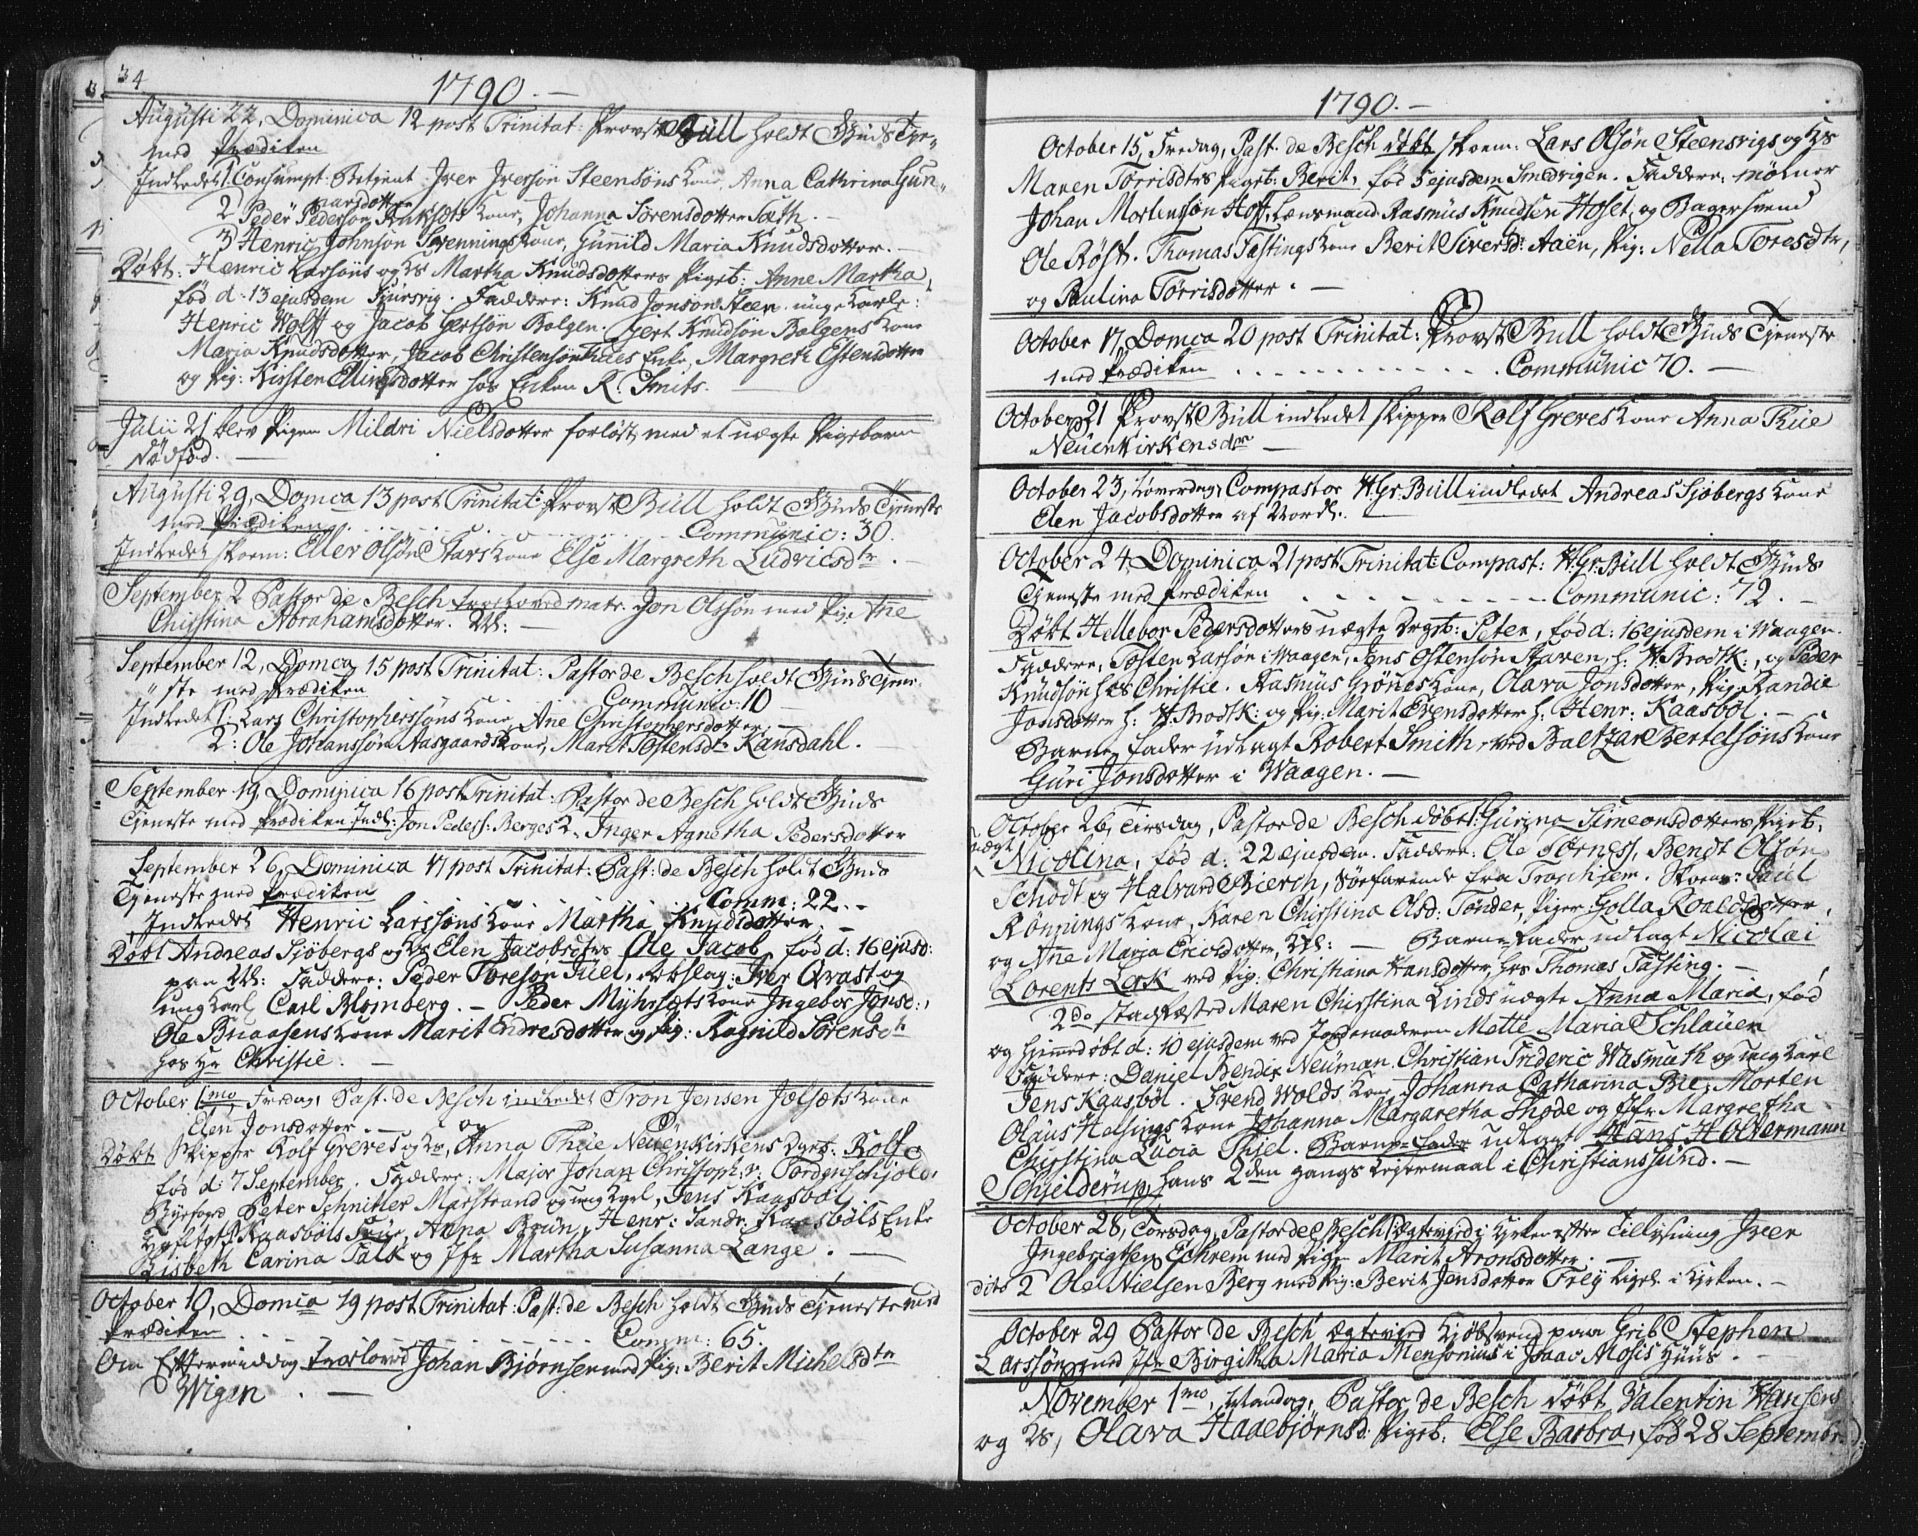 34
1790. —
Augusti 22, Dominica 12 post Trinitat: Provst Büll holdt Guds Tjen-
med Prædiken
Indledet 1. Consumpt: Betjent Iver Iversøn Steensøns Kone, Anna Cathrina Gun-
narsdotter
2 Peder Pedersøn Kone, Johanna Sørensdotter Sæth. —
3 Henric Johnson Kone, Gunild Maria Knudsdotter. —
Døbt: Henric Larsøns og Hs Martha Knudsdotters Pigeb: Anne Martha,
fød d: 13 ejusdem . Faddere: Knud Jonsøn Steen. unge Karle:
Henric Wolff og Jacob Gertsøn Bolgen. Gert Knudsøn Bolgens Kone
Maria Knudsdotter, Jacob Christensøn Enke, Margreth Estensdotter
og Pig: Kirsten Ellingsdotter hos Enken R. Smits.
Julii 21 blev Pigen Mildri Nielsdotter forløst med et uægte Pigebarn
dødfød. —
Augusti 29, Domca 13 post Trinitat: Provst Büll holdt Guds Tjeneste
med Prædiken . . . . . . . Communic: 30.
Indledet Skoem: Eller Olsøn Stars Kone Else Margreth Ludvicsdtr. —
September 2 Pastor de Besch troloved matr. Jon Olssøn med Pige Ane
Christina Abrahamsdotter. —
September 12, Domca 15 post Trinitat: Pastor de Besch holdt Guds Tjene-
ste med Prædiken Communic: 10 —
Indledet 1. Lars Christophersøns Kone, Ane Christophersdotter. —
2: Ole Johanssøn Aasgaards Kone, Marit Tostensdr Kansdahl. —
September 19, Dominica 16 post Trinitat: Pastor de Besch holdt Guds
Tjeneste med Prædiken Indl: Jon Peders: Berges K. Inger Agnetha Pedersdotter
September 26, Dominica 17 post Trinitat: Past: de Besch holdt Guds
Tjeneste med Prædiken Comm: 22. —
Indledet Henric Larssøns Kone Martha Knudsdotter. —
Døbt Andreas Sjøbergs og Hs Elen Jacobsdtrs Ole Jacob, fød d: 16 ejusd:
paa Faddere: Peder Toresøn , Iver Qvast og
ung Karl Carl Blomberg. — Peder Myhrsæts Kone Ingebor Jonsd:,
Ole Knaasens Kone Marit Endresdotter og Pig: Ragnild Sørensdtr
hos Hr Christie. —
October 1mo, Fredag, Past. de Besch indledet Tron Jensen Jølsæts Kone
Elen Jonsdotter. — og
Døbt Skipper Rolf Greves og Hr Anna Thüe Neuenkirkens Drgeb: Rolf
fød d: 7 September. Faddere: Major Johan Christoph: v: Tordenschjold.
Byefoged Peter Schnitler Marstrand og ung Karl, Jens Kaasbøl.
Kaasbøls Frue, Anna Brün, Henr: Sandr: Kaasbøls Enke
Lisbeth Carina Falk og Jfr Martha Susanna Lange. —
October 10, Domca 19 post Trinitat: Past: de Besch holdt Guds Tjeneste med
Prædiken . . . . . . . Comm: 65.
Om Eftermiddag trolovet Johan Bjørnsen med Pig: Berit Michelsdtr
Wigen. —
1790. —
October 15, Fredag, Past: de Besch døbt Skoem: Lars Olsøn Steensvigs og Hs
Maren Torrisdtrs Pigeb: Berit, fød 5 ejusdem Smedvigen. Faddere: Mølner
Johan Mortenssøn Hoff, Lænsmand Rasmus Knudsen Hoset, og Bagersvend
Ole Røst. Thomas Fastings Kone Berit Siversd: Aaen, Pig: Nella Toresdtr,
og Paulina Torrisdotter. —
October 17, Domca 20 post Trinitat: Provst Büll holdt Guds Tjeneste
med Prædiken . . . . . . . Communic 70. —
October 21 Provst Büll indledet Skipper Rolf Greves Kone Anna Thüe
Neuenkirkens dtr —
October 23, Løverdag, Compastor H: Gr: Büll indledet Andreas Sjøbergs Kone
Elen Jacobsdotter af Nordl:.
October 24, Dominica 21 post Trinitat: Compast: H: Gr: Büll holdt Guds
Tjeneste med Prædiken . . . . . . . Communic: 72. —
Døbt Hellebor Pedersdotters uægte Drgeb: Peter, fød d: 16 ejusdem i Waagen.
Faddere, Tosten Larsøn i Waagen, Jens Ostensøn Staven, h: H: Brodtk:, og Peder
Knudsøn hos Christie. Rasmus Grønes Kone, Olava Jonsdotter, Pig: Randie
Jonsdotter h: H: Brodtk: og Pig: Marit Evensdotter h: Henr: Kaasbøl. —
Barne fader udlagt Robert Smith, ved Baltzar Bertelsøns Kone
Guri Jonsdotter i Waagen. —
October 26, Tirsdag, Pastor de Besch døbt 1: Gurina Simeonsdotters Pigeb:
uægt
Nicolina, fød d: 22 ejusdem. Faddere: Ole Tørness, Bendt Olsøn
Schodt og Halvard Bierch, Søefarende fra Tronhjem. Skoem: Paul
Rønnings Kone, Karen Christina Olsd: Tønder, Piger: Golla Roaldsdotter,
og Ane Maria Ericsdotter, — Barne Fader udlagt Nicolai
Lorents Lerk ved Pig: Christiana Hansdotter, hos Thomas Fasting. —
2do stadfæsted Maren Christina Linds uægte Anna Maria, fød
og hjemmedøbt d: 10 ejusdem ved Jordemoderen Mette Maria Schlauer
Faddere: Daniel Bendix Neuman, Christian Frideric Wasmuth og ung Karl
Jens Kaasbøl. Svend Wolds Kone Johanna Catharina Bie, Morten
Olaus Halsings Kone Johanna Margaretha Thode og Jfr Margretha
Christina Lucia Thjel. Barne Fader udlagt Hans H Ockermann
Schjelderup, hans 2den gangs Leiermaal i Christianssund. —
October 28, Torsdag, Pastor de Besch ægteviedi Kirken efter Tillysning Iver
Ingebrigtsen Echrem med Pige Marit Aronsdotter. —
dito 2 Ole Nielsen Berg med Pig: Berit Jensdotter Frey ligel: i Kirken. —
October 29 Pastor de Besch ægteviet Kjøbsvend paa Grib Stephen
Larssøn med Jfr Birgitha Maria Mensonius i Isaac Mosis Huus. —
November 1mo, Mandag, Pastor de Besch døbt Valentin Hansens
og Hs, Olava Haaebjørnsd: Pigeb: Else Barbra, fød 28 Septembr: